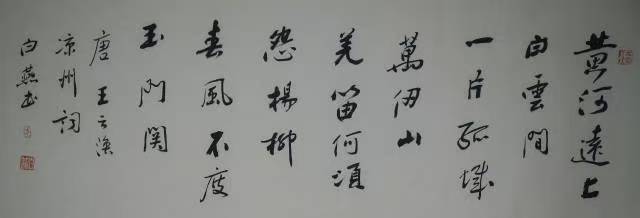 黄河遠上
白雲間
一片孤城
萬仞山
羌笛何須
怨楊柳
春風不度
玉門関
唐 王之渙
凉州詞
白燕书